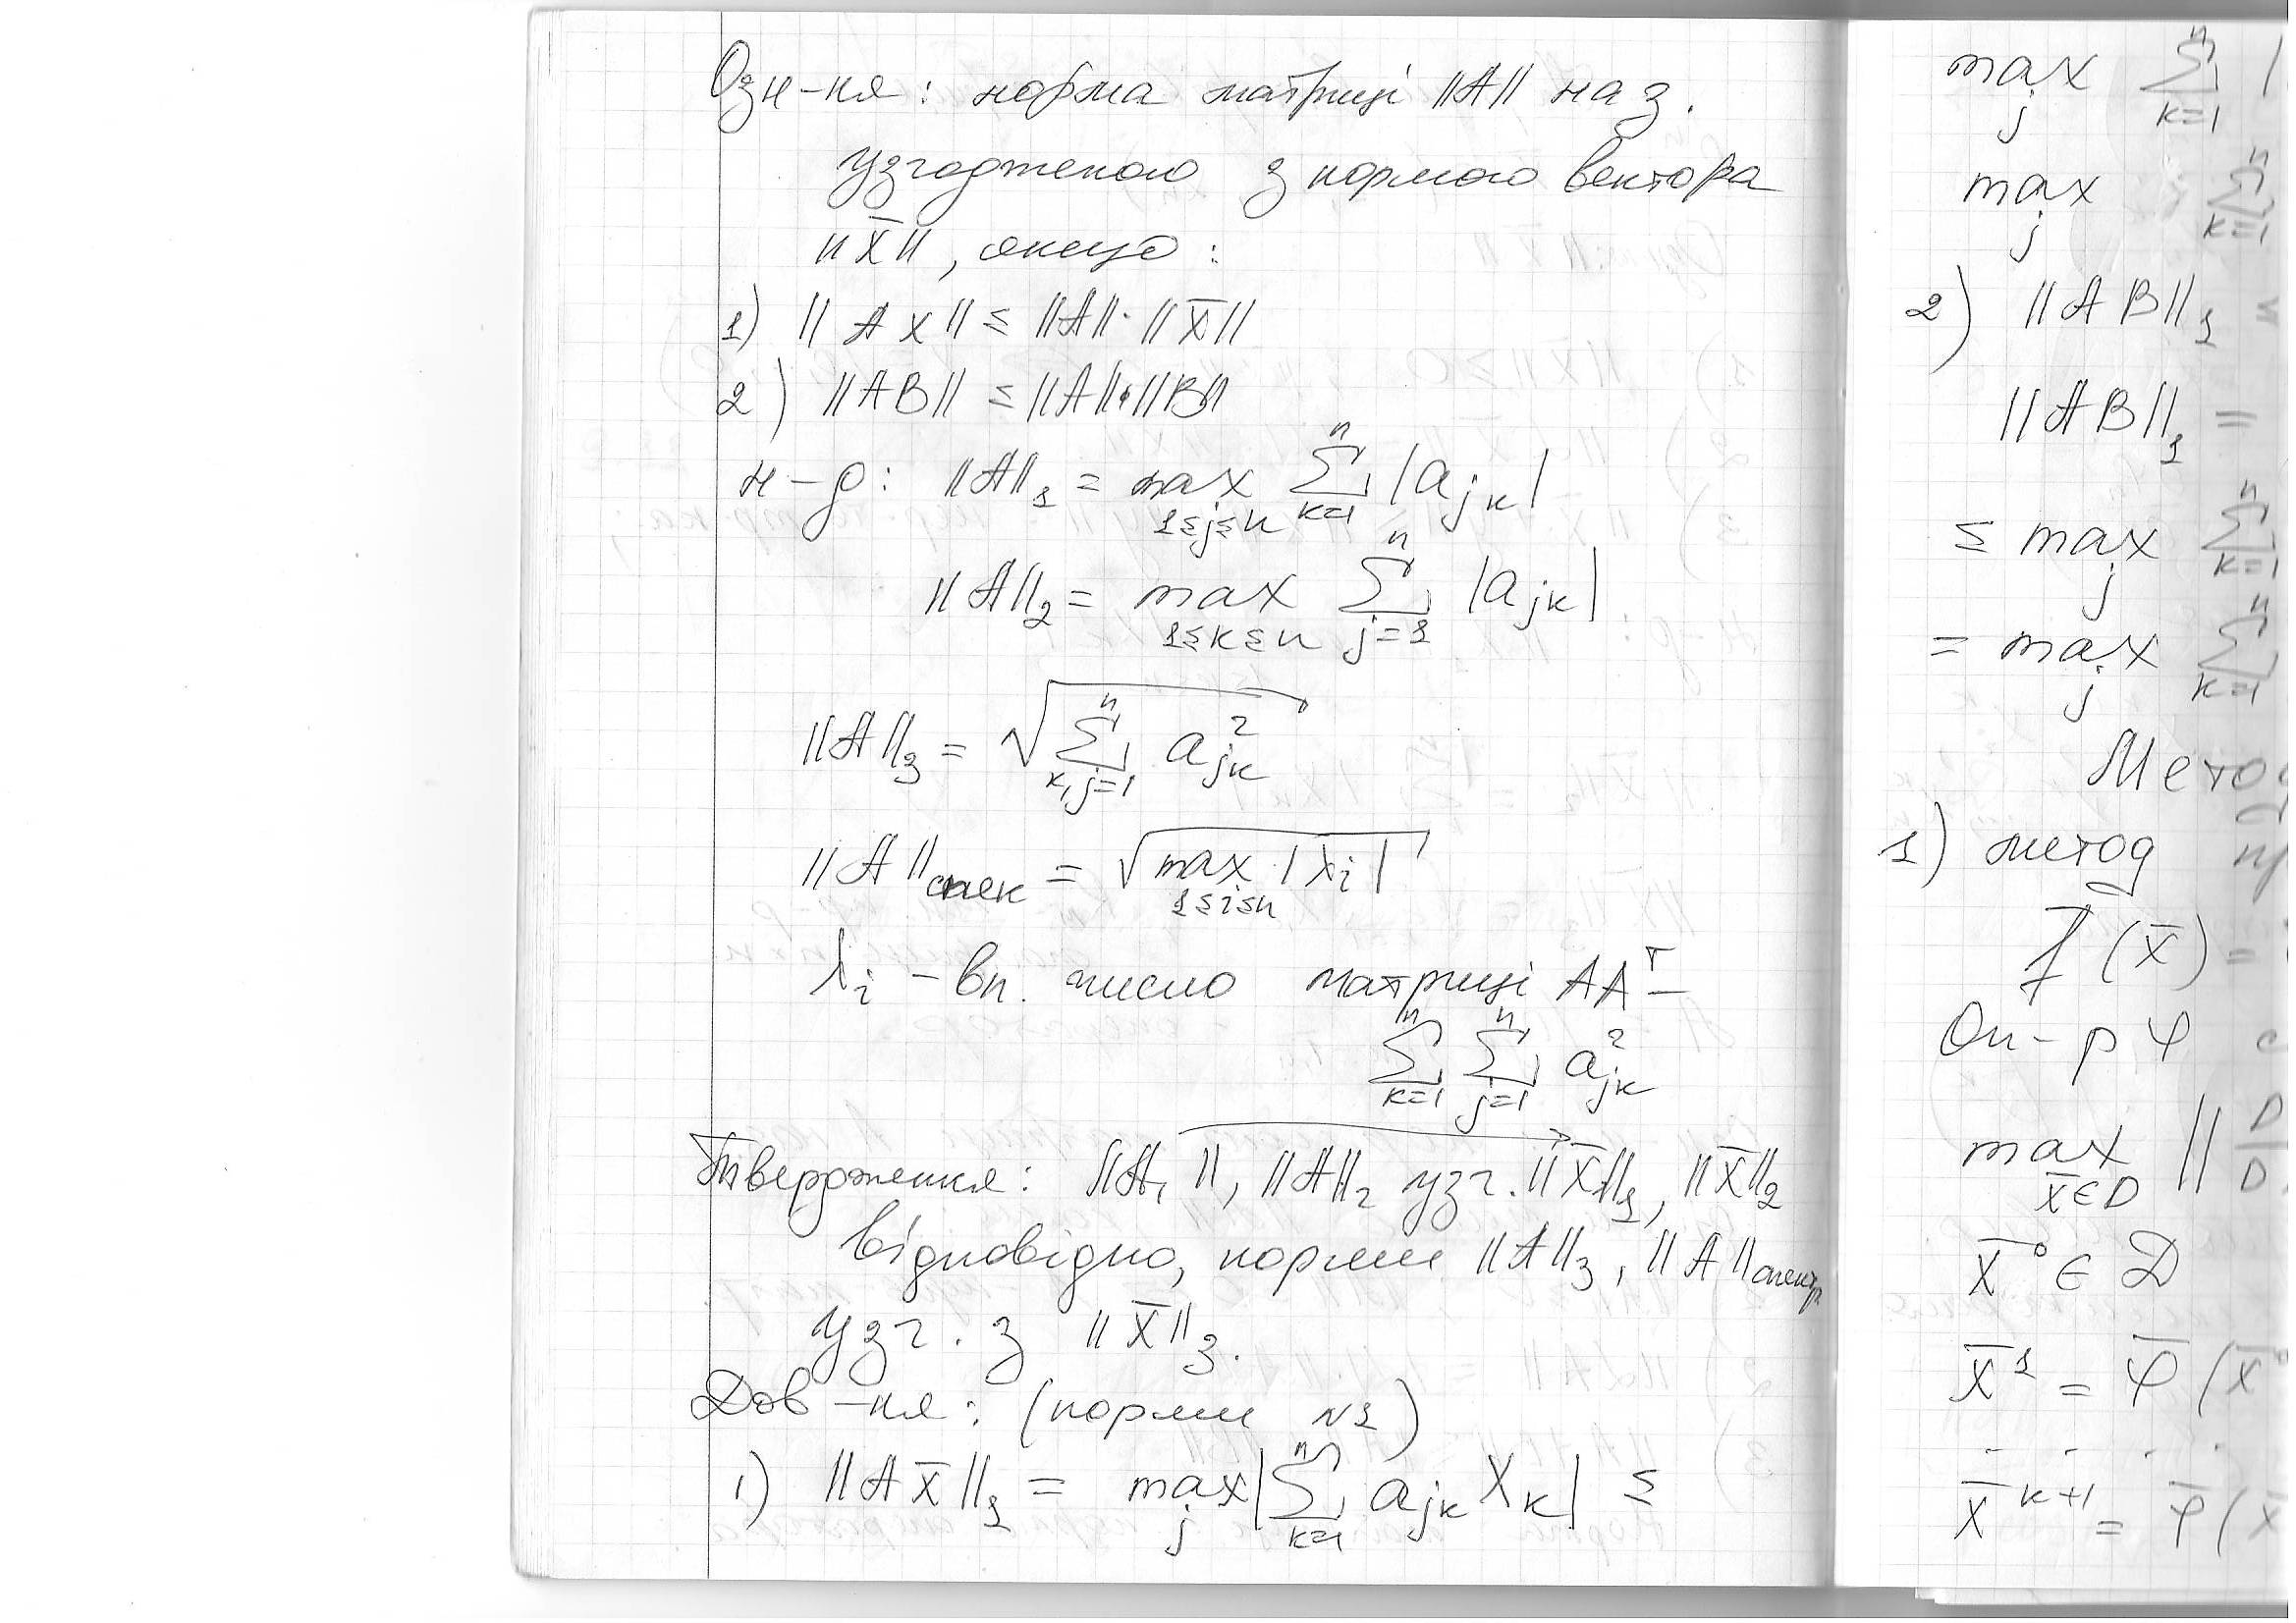 Озн-ня: норма матриці ||A|| наз.
узгодженою з нормою вектора
||x̅||, якщо:
1) ||Ax|| ≤ ||A||·||x̅||
2) ||AB|| ≤ ||A||·||B||
н-д: ||A||₁ = max_{1≤j≤n} ∑_{k=1}^{n} |a_{jk}|
||A||₂ = max_{1≤k≤n} ∑_{j=1}^{n} |a_{jk}|
||A||₃ = √(∑_{k,j=1}^{n} a_{jk}²)
||A||_{спек} = √(max_{1≤i≤n} |λ_i|)
λ_i – вл. число матриці AAᵀ –
∑_{k=1}^{n} ∑_{j=1}^{n} a_{jk}²
Твердження: ||A₁||, ||A||₂ узг. ||x̅||₁, ||x̅||₂
відповідно, норми ||A||₃, ||A||_{спектр}
узг. з ||x̅||₃.
Дов-ня: (норми №1)
1) ||Ax̅||₁ = max_j |∑_{k=1}^{n} a_{jk} x_k| ≤
max_j ∑_{k=1}^{n} |
max_j ∑_{k=1}^{n}
2) ||AB||₁
||AB||₁ =
≤ max_j ∑_{k=1}^{n}
= max_j ∑_{k=1}^{n}
1) метод
f̅(x̅) =
Оп-р φ
max_{x̅∈D} ||
x̅⁰ ∈ D
x̅¹ = φ̅(x̅⁰
. . . .
x̅^{k+1} = φ̅(x̅